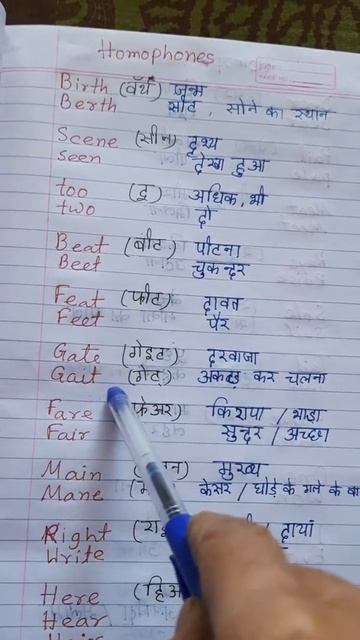 Homophones
Birth (बॅर्थ) जन्म
Berth सीट, सोने का स्थान
Scene (सीन) दृश्य
seen देखा हुआ
too (टू) अधिक, भी
two दो
Beat (बीट) पीटना
Beet चुकन्दर
Feat (फीट) दावत
Feet पैर
Gate (गेइट) दरवाजा
Gait (गेट) अकड़ कर चलना
Fare फेअर) किराया / भाड़ा
Fair सुन्दर / अच्छा
Main मुख्य
Mane केसर / घोड़े के गले के बा
Right (राइ / दायां
Write
Here (हिअ
Hear